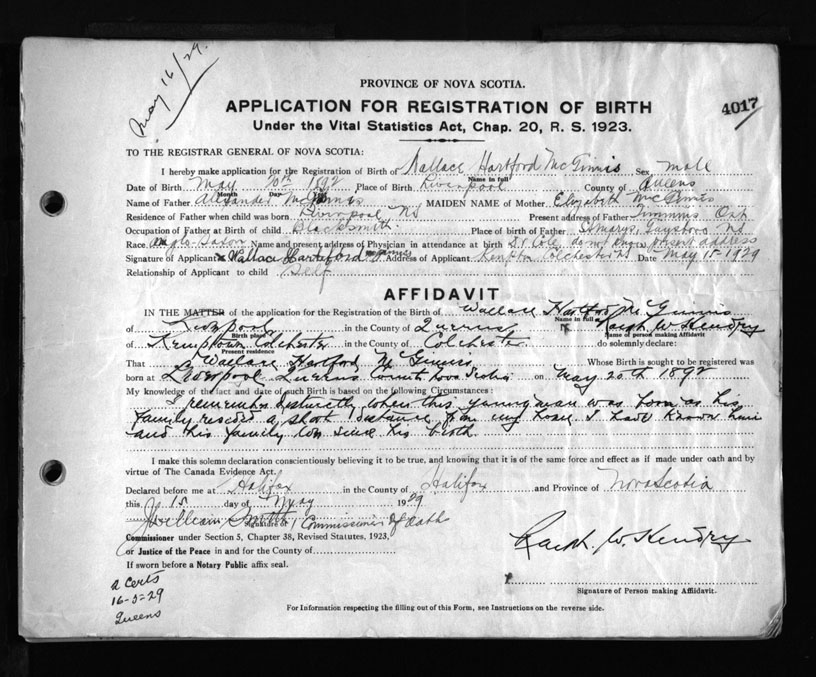 May 16/29.
PROVINCE OF NOVA SCOTIA.
APPLICATION FOR REGISTRATION OF BIRTH
4017
Under the Vital Statistics Act, Chap. 20, R. S. 1923.
TO THE REGISTRAR GENERAL OF NOVA SCOTIA:
I hereby make application for the Registration of Birth of Wallace Hartford McGinnis Sex male
Name in full
Date of Birth May 20th 1892 Place of Birth Liverpool County of Queens
Month Day Year
Name of Father Alexander McGinnis MAIDEN NAME of Mother Elizabeth McGinnis
Residence of Father when child was born Liverpool, NS Present address of Father Timmins Ont
Occupation of Father at Birth of child Blacksmith. Place of birth of Father St Marys, Guysboro NS
Race Anglo-Saxon Name and present address of Physician in attendance at birth Dr Cole, present address
Signature of Applicant Wallace Hartford McGinnis Address of Applicant Kempton Colchester NS Date May 15-1929
Relationship of Applicant to child Self
AFFIDAVIT
IN THE MATTER of the application for the Registration of the Birth of Wallace Hartford McGinnis
Name in full
of Liverpool in the County of Queens I, Ralph W Hendry
Birth place Name of person making Affidavit
of Kemptown Colchester in the County of Colchester do solemnly declare:
Present residence
That Wallace Hartford McGinnis Whose Birth is sought to be registered was
born at Liverpool Queens County Nova Scotia on May 20th 1892
My knowledge of the fact and date of such Birth is based on the following Circumstances:
I remember distinctly when this young man was born as his
family resided a short distance from my home I have known him
and his family since his birth.
I make this solemn declaration conscientiously believing it to be true, and knowing that it is of the same force and effect as if made under oath and by
virtue of The Canada Evidence Act.
Declared before me at Halifax in the County of Halifax and Province of Nova Scotia
this 15 day of May 1929
William Smith Commissioner of Oaths
Signature of
Commissioner under Section 5, Chapter 38, Revised Statutes, 1923,
or Justice of the Peace in and for the County of
Ralph W. Hendry
If sworn before a Notary Public affix seal.
Signature of Person making Affidavit.
2 Certs
16-5-29
Queens
For Information respecting the filling out of this Form, see Instructions on the reverse side.